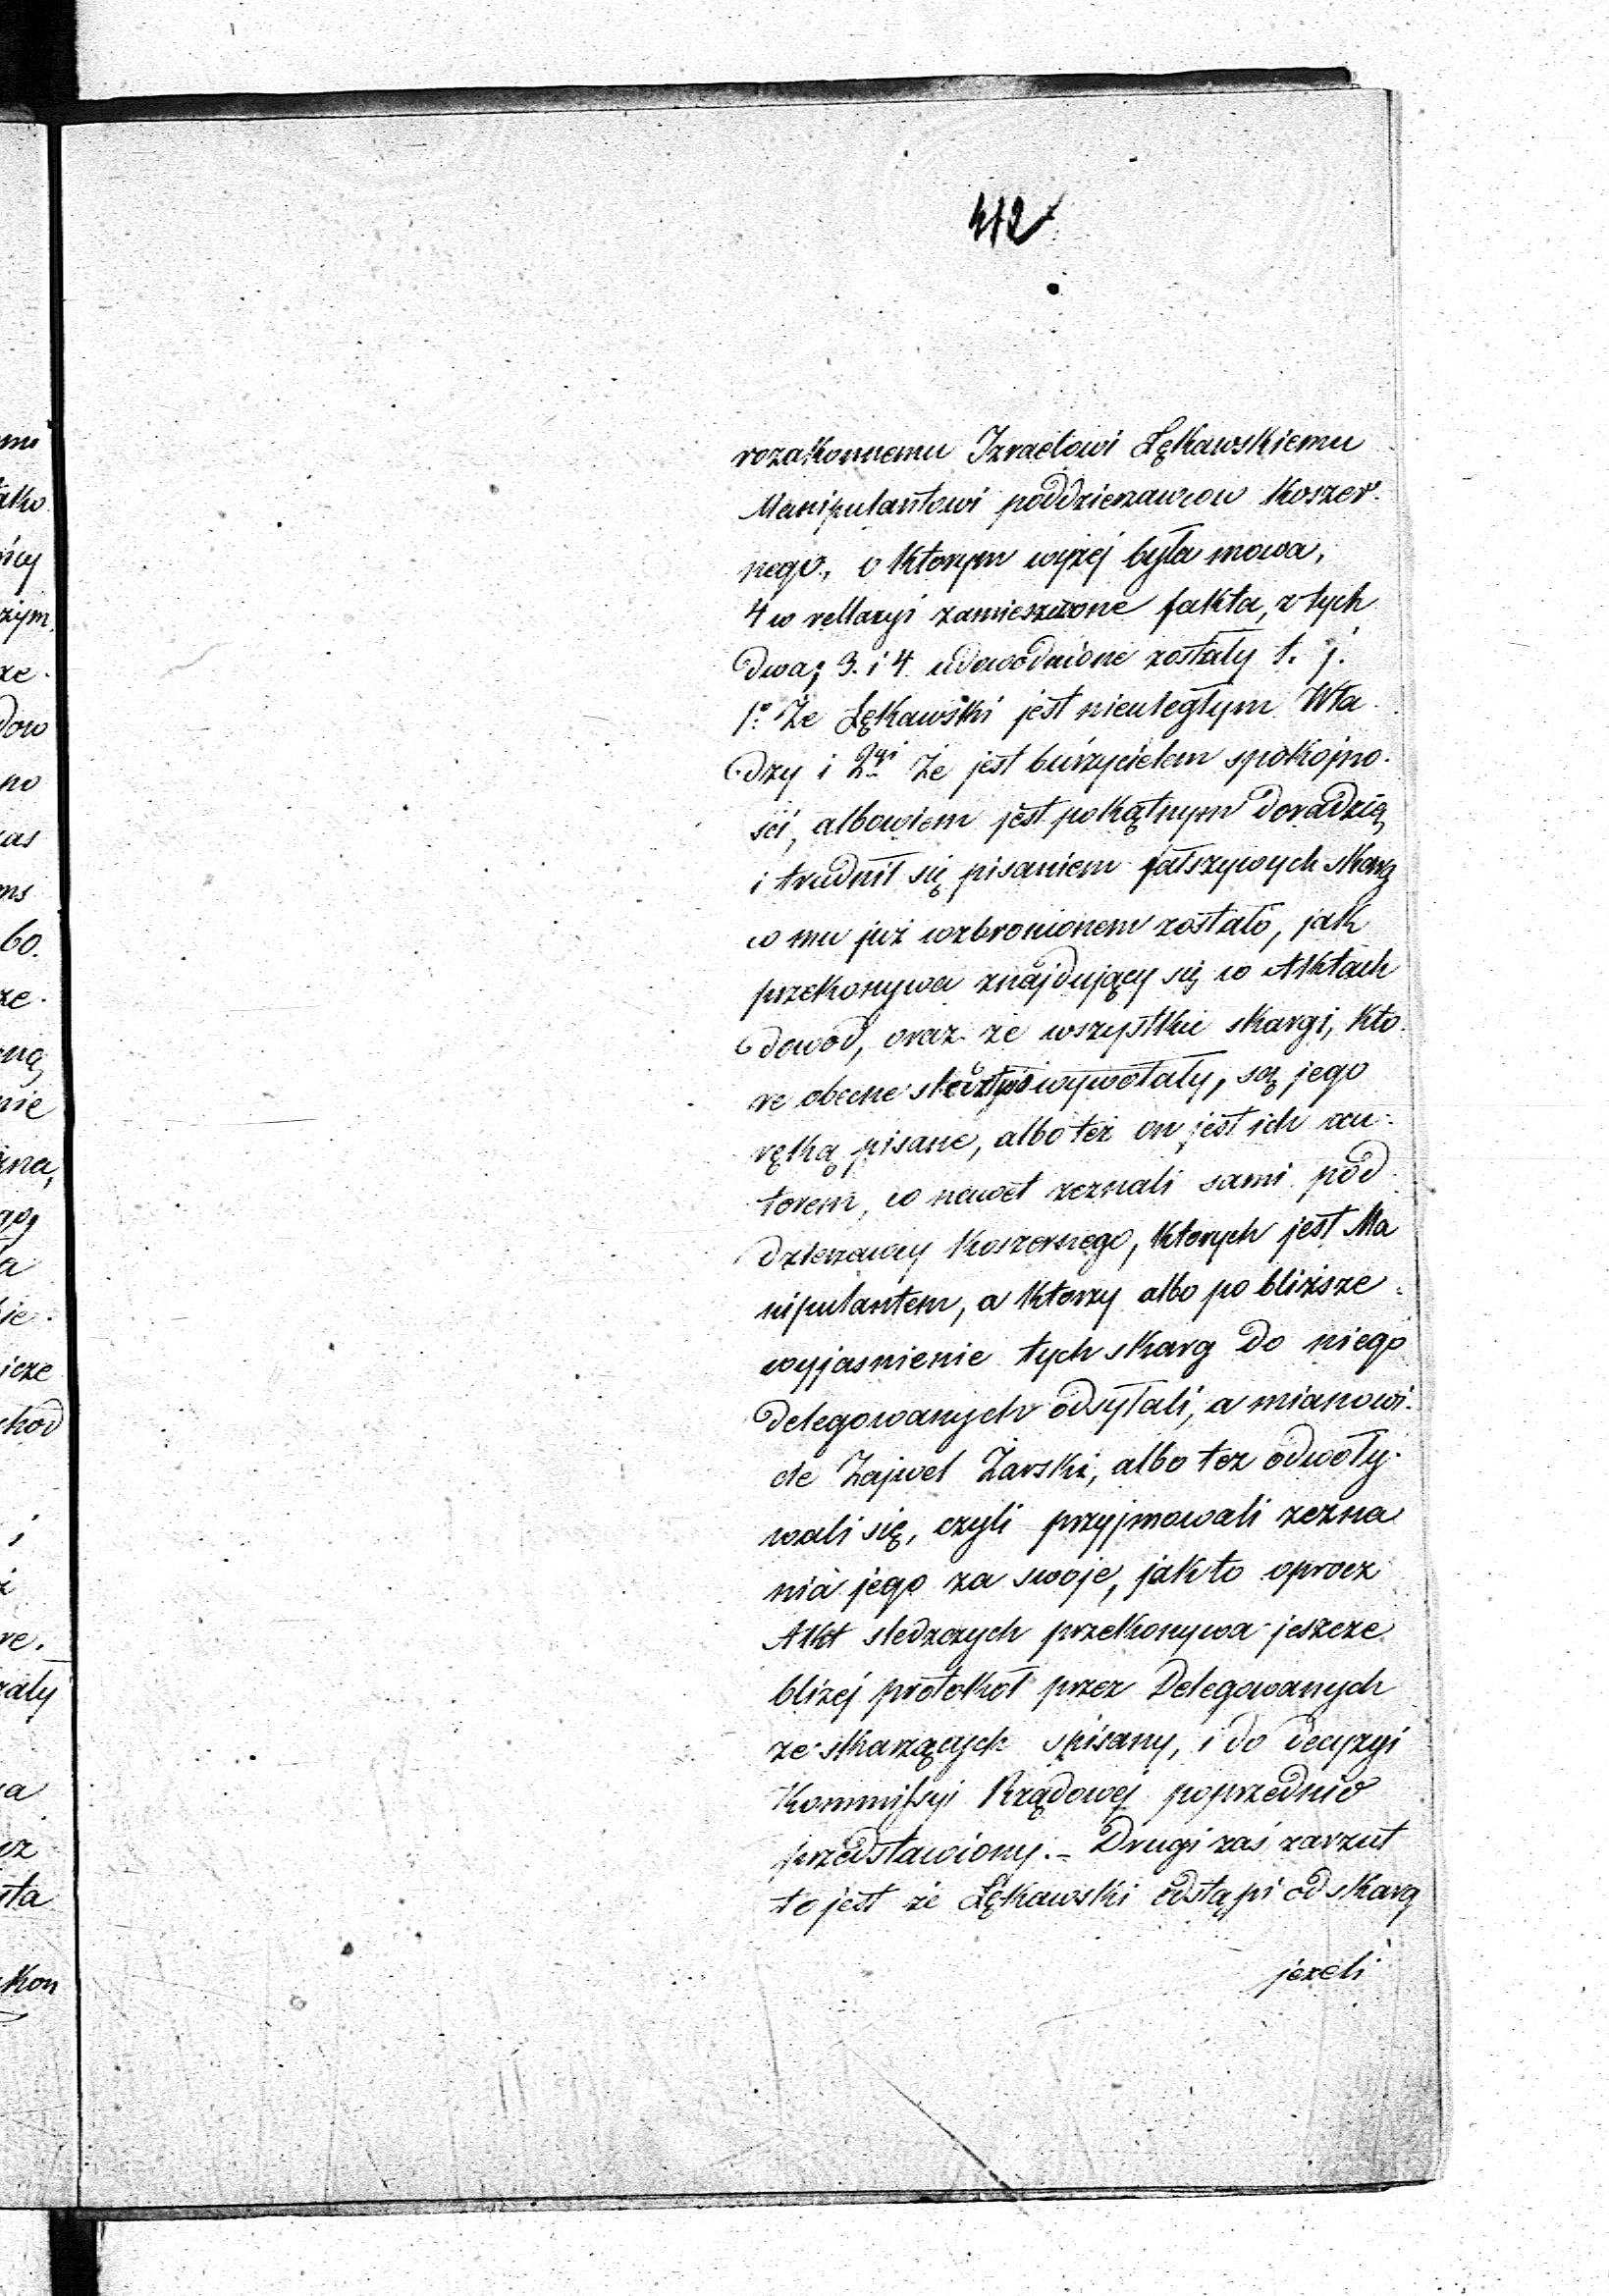 412
rozakonnemu Izraelowi Łękawskiemu
Manipulantowi poddzierzawcow Koszer-
nego, o ktorym wyżej była mowa,
4 w rellacyi zamieszczone fakta, z tych
dwa; 3. i 4 udowodnione zostały t. j.
1o Że Łękawski jest nieuległym Wła-
dzy i 2gi Że jest burzycielem spokojno-
ści, albowiem jest pokątnym doradzcą
i trudnił się pisaniem fałszywych skarg
co mu już wzbronionem zostało, jak
przekonywa znajdujący się w Aktach
dowód, oraz że wszystkie skargi, kto-
re obecne śledztwo wywołały, są jego
ręką pisane, albo też on jest ich au-
torem, co nawet zeznali sami pod-
dzierzawcy Koszernego, ktorych jest Ma
nipulantem, a ktorzy albo po bliższe
wyjasnienie tych skarg do niego
Delegowanych odsyłali, a mianowi-
cie Zajwel Żarski, albo tez odwoły-
wali się, czyli przyjmowali zezna
nia jego za swoje, jak to oprocz
Akt sledzczych przekonywa jeszcze
bliżej protokół przez Delegowanych
ze skarzących spisany, i do decyzyi
Kommissyi Rządowej poprzednio
przedstawiony. – Drugi zaś zarzut
to jest że Łękawski odstąpi od skarg
jezeli